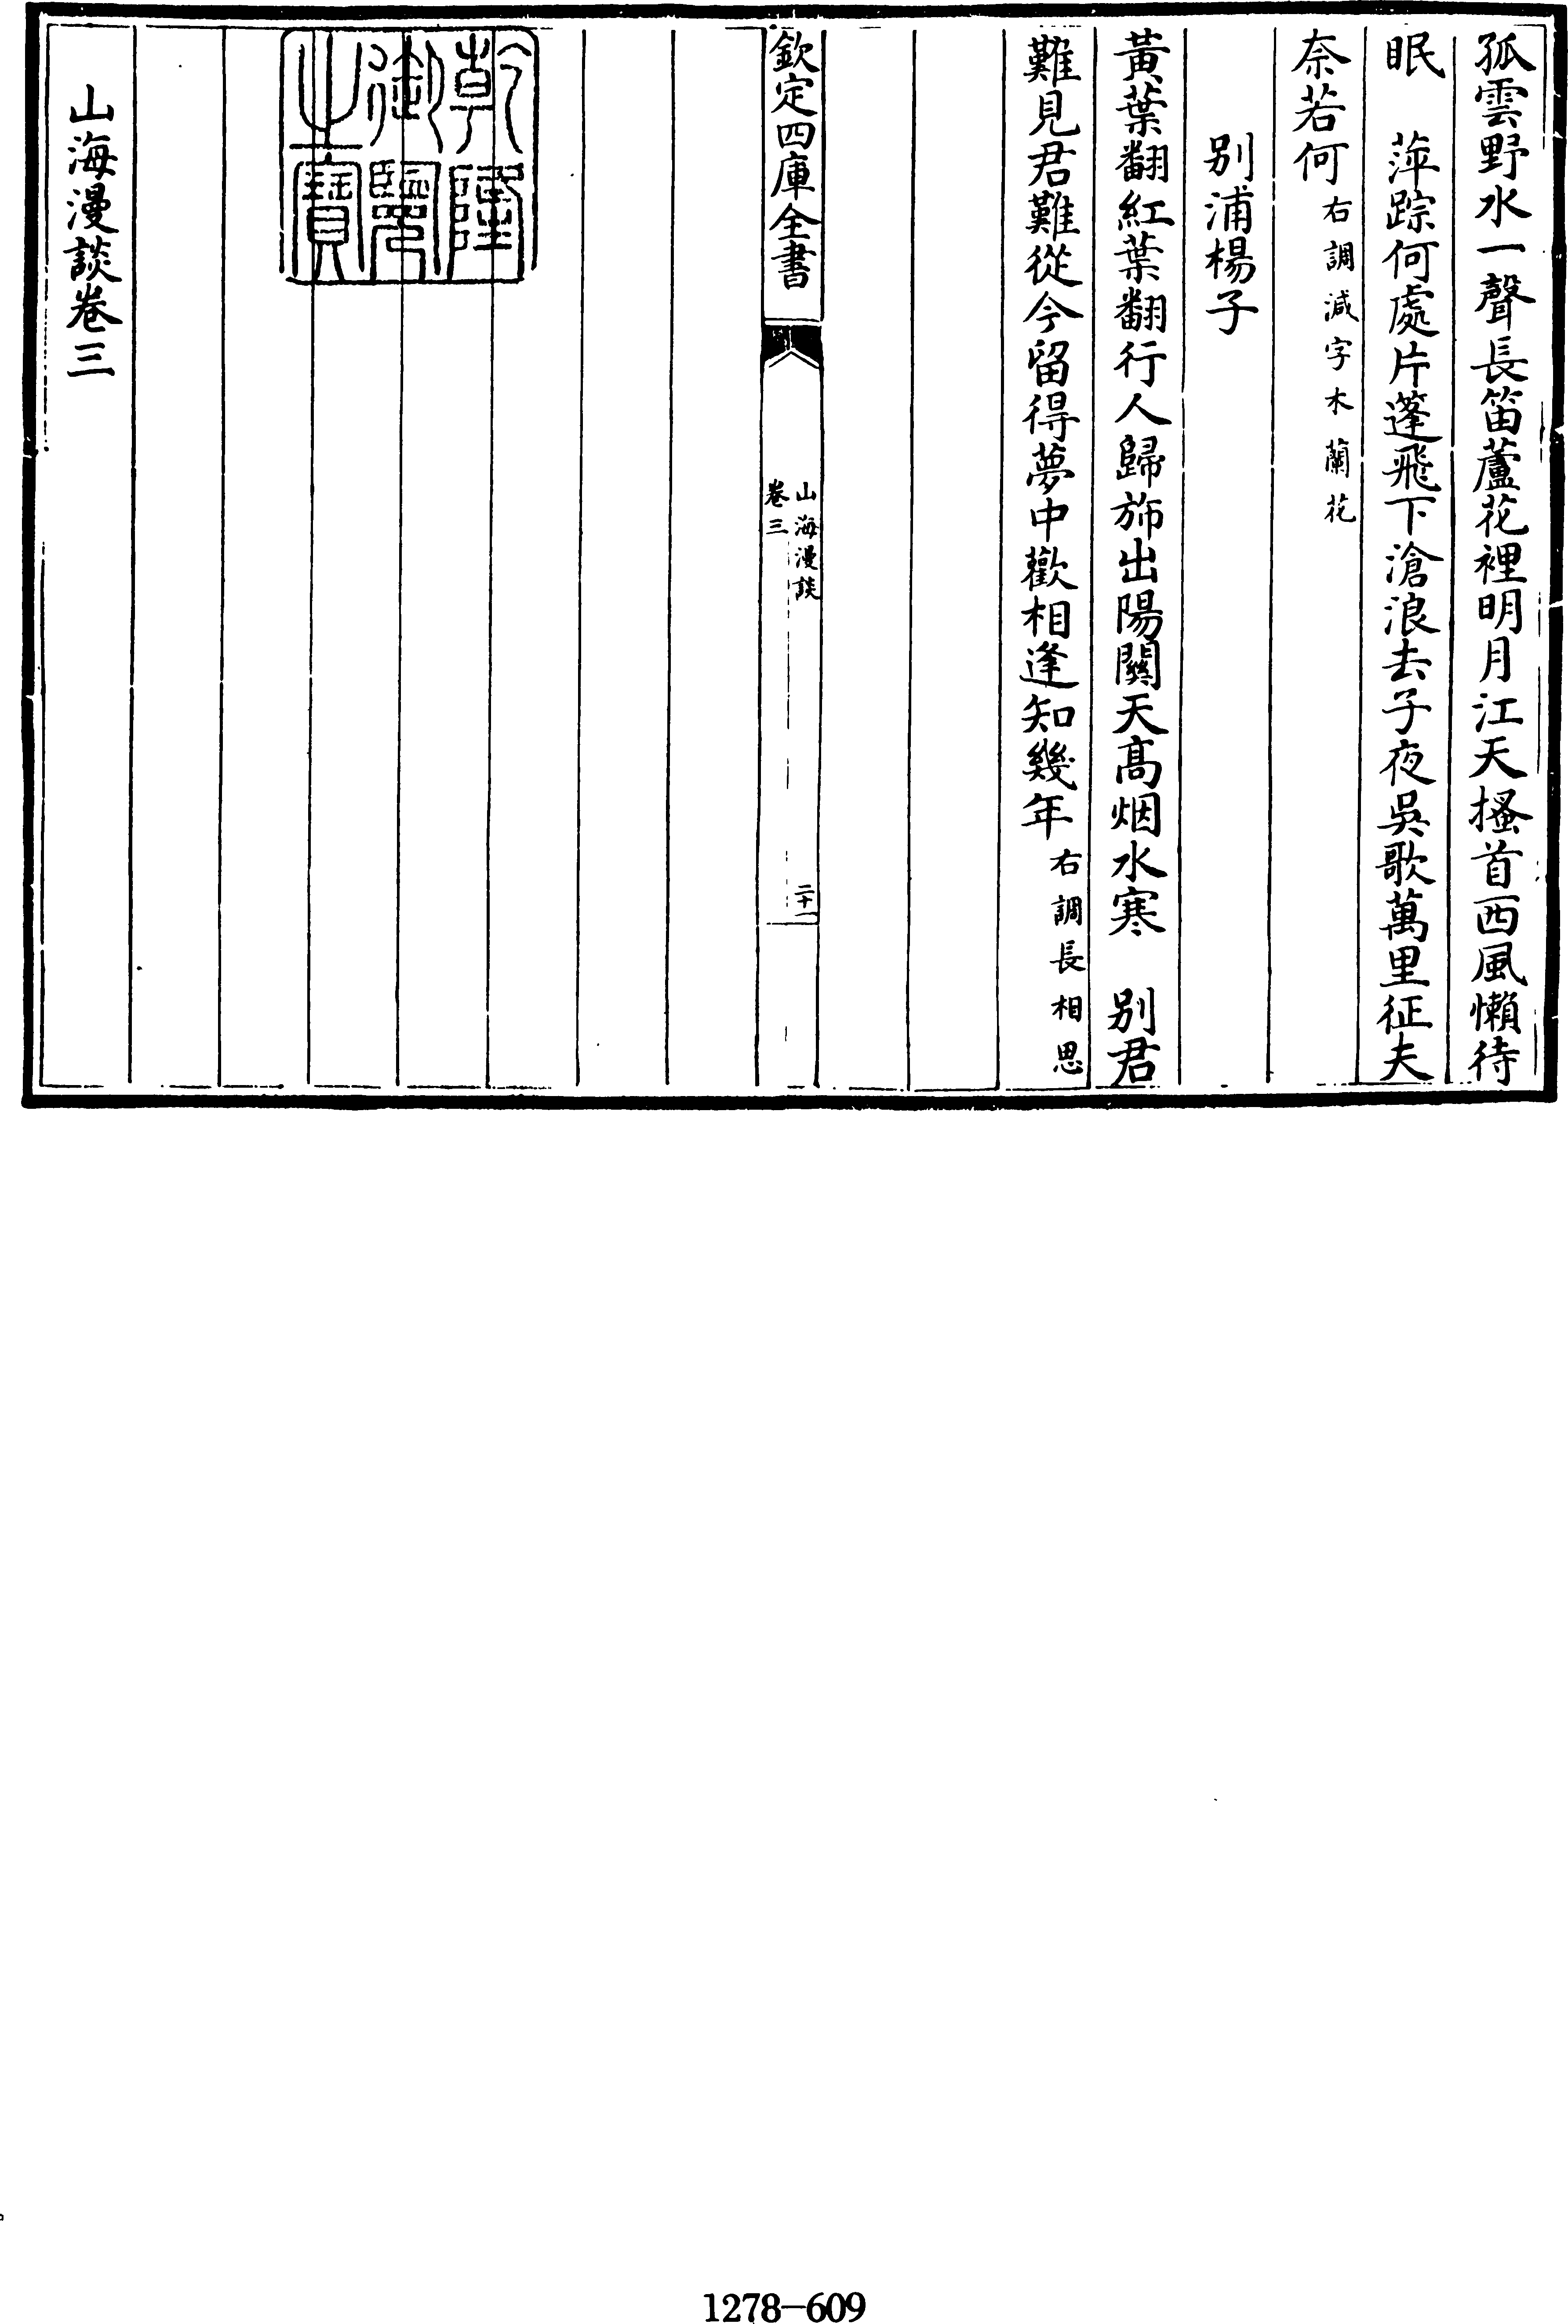 孤雲野水一聲長笛蘆花裡明月江天搔首西風懶待
眠　萍踪何處片蓬飛下滄浪去子夜吳歌萬里征夫
奈若何右調減字木蘭花
別浦楊子
黃葉翻紅葉翻行人歸斾出陽關天高烟水寒　別君
難見君難從今留得夢中歡相逢知幾年右調長相思
欽定四庫全書
山海漫談
卷三
二十一
乾隆
御覽
之寶
山海漫談卷三
1278-609